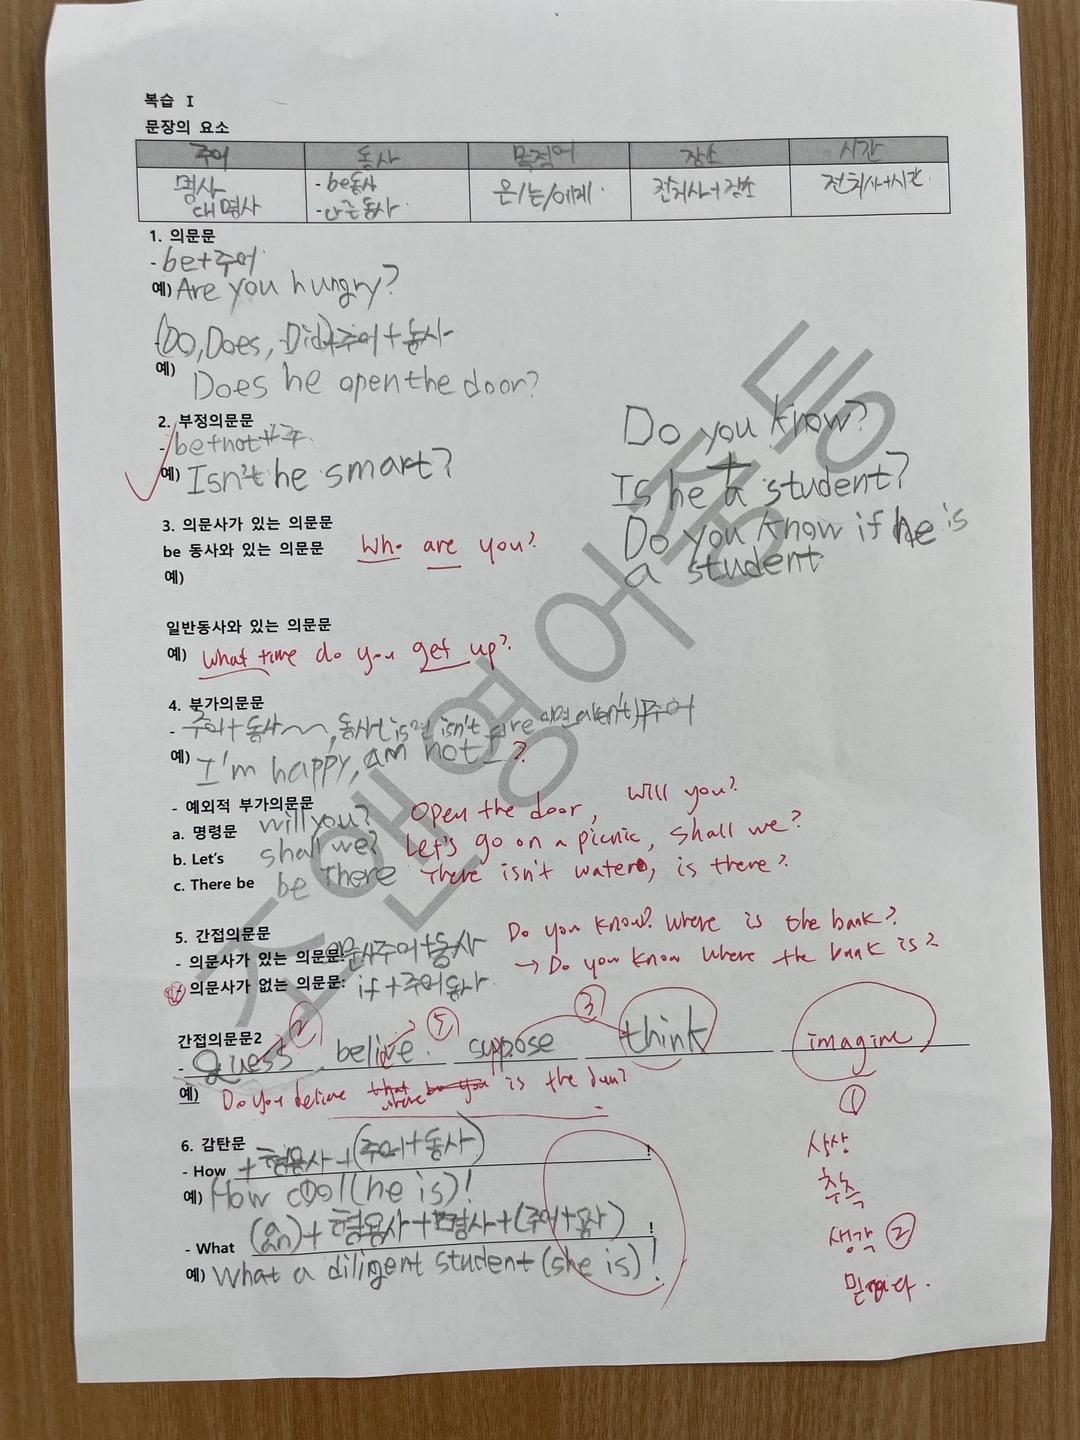 복습 I
문장의 요소
주어 동사 목적어 장소 시간
명사 - be동사 을/는/에게. 전치사+장소 전치사+시간.
대명사 - 일반동사.
1. 의문문
- be+주어
예) Are you hungry?
(Do, Does, Did)+주어+동사
예)
Does he open the door?
2. 부정의문문
- be+not+주
예) Isn't he smart?
Do you know?
+
Is he a student?
Do you know if he is
a student
3. 의문사가 있는 의문문
be 동사와 있는 의문문 Who are you?
예)
일반동사와 있는 의문문
예) What time do you get up?
4. 부가의문문
- 주어+동사~~, 동사 is면 isn't are aren't)+주어
예) I'm happy, am not I?
- 예외적 부가의문문
a. 명령문 will you? Open the door, will you?
b. Let's shall we? Let's go on a picnic, shall we?
c. There be be there There isn't water, is there?
5. 간접의문문 Do you know? Where is the bank?
- 의문사가 있는 의문문: 의문사주어+동사 → Do you know where the bank is?
의문사가 없는 의문문: if+주어동사.
간접의문문2 ② ⑤ ③
- guess believe. suppose think imagine
예) Do you believe where is the ①
6. 감탄문
- How +형용사+(주어+동사) !
예) How cool (he is)!
- What (a/an)+형용사+명사+(주어+동사) !
예) What a diligent student (she is)!
상상
추측
생각 ②
믿다.
조앤영어중등